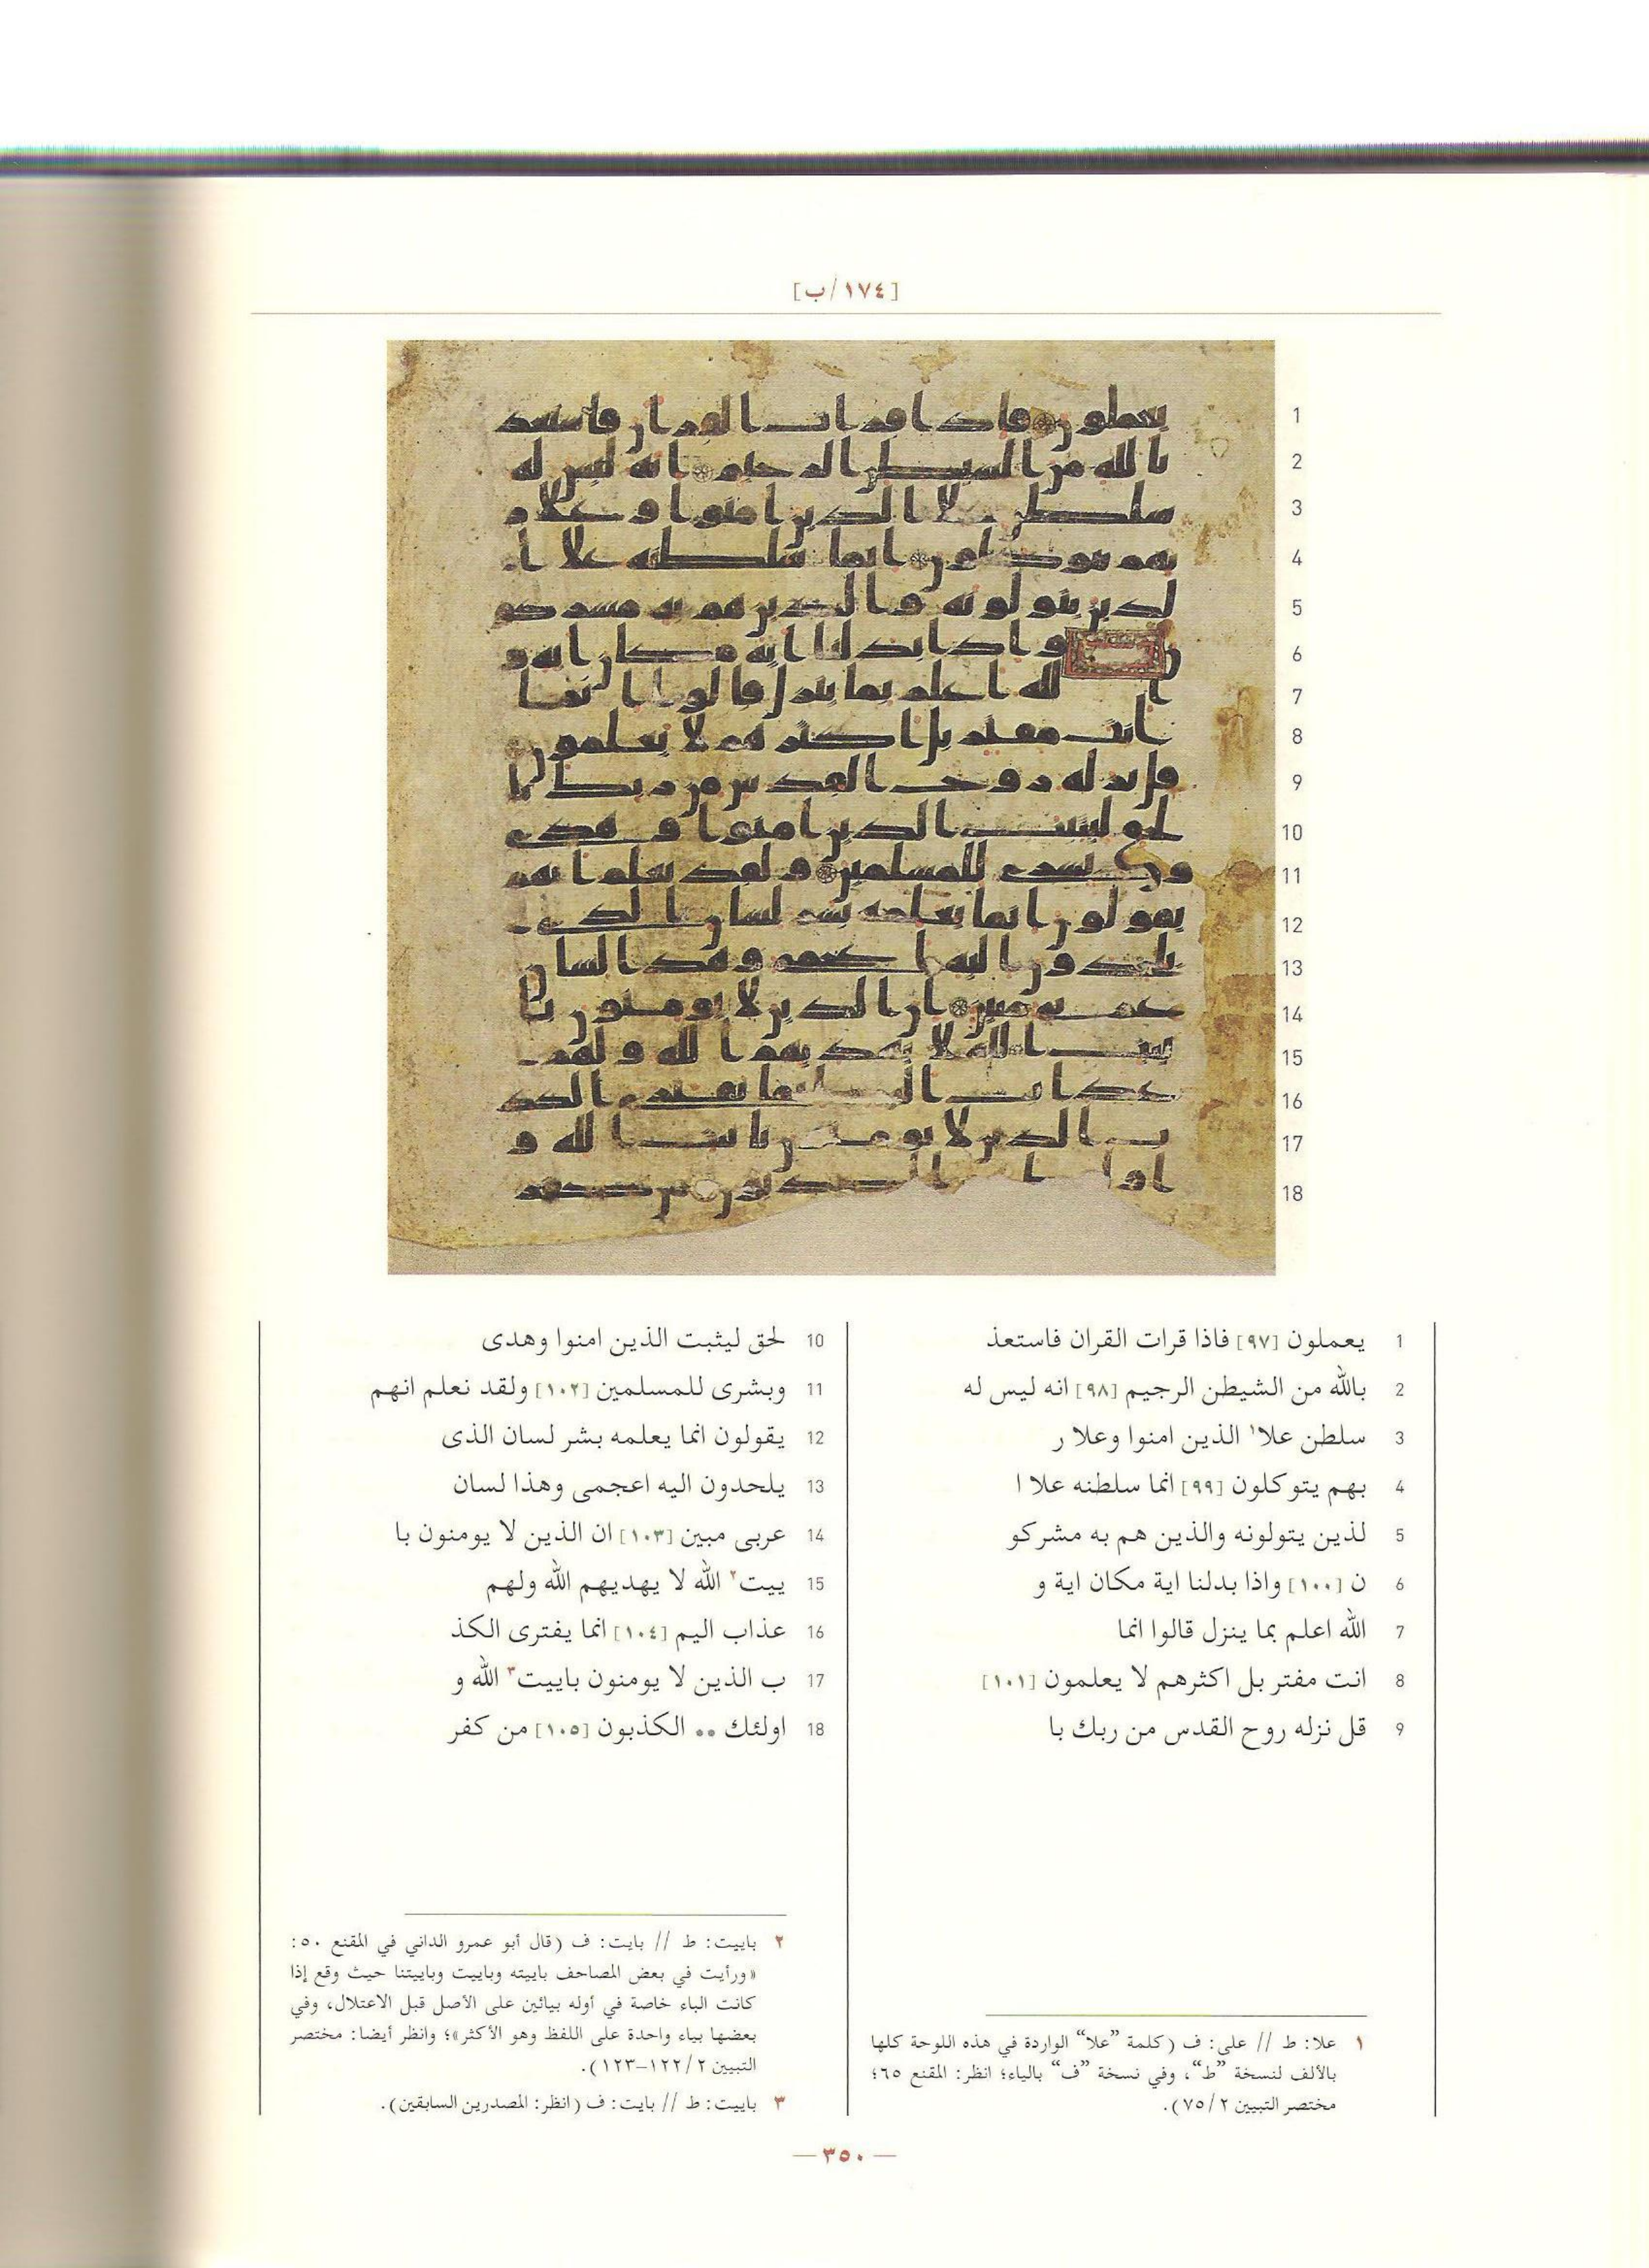 [١٧٤/ب]
1 يعملون [٩٧] فاذا قرات القران فاستعذ
2 بالله من الشيطن الرجيم [٩٨] انه ليس له
3 سلطن علا١ الذين امنوا وعلا ر
4 بهم يتوكلون [٩٩] انما سلطنه علا ا
5 لذين يتولونه والذين هم به مشركو
6 ن [١٠٠] واذا بدلنا اية مكان اية و
7 الله اعلم بما ينزل قالوا انما
8 انت مفتر بل اكثرهم لا يعلمون [١٠١]
9 قل نزله روح القدس من ربك با
10 لحق ليثبت الذين امنوا وهدى
11 وبشرى للمسلمين [١٠٢] ولقد نعلم انهم
12 يقولون انما يعلمه بشر لسان الذى
13 يلحدون اليه اعجمى وهذا لسان
14 عربى مبين [١٠٣] ان الذين لا يومنون با
15 ييت٢ الله لا يهديهم الله ولهم
16 عذاب اليم [١٠٤] انما يفترى الكذ
17 ب الذين لا يومنون باييت٣ الله و
18 اولئك •• الكذبون [١٠٥] من كفر
١ علا: ط // على: ف (كلمة ”علا“ الواردة في هذه اللوحة كلها
بالألف لنسخة ”ط“، وفي نسخة ”ف“ بالياء؛ انظر: المقنع ٦٥؛
مختصر التبيين ٧٥/٢).
٢ باييت: ط // بايت: ف (قال أبو عمرو الداني في المقنع ٥٠:
«ورأيت في بعض المصاحف باييته وباييت وباييتنا حيث وقع إذا
كانت الباء خاصة في أوله بيائين على الأصل قبل الاعتلال، وفي
بعضها بياء واحدة على اللفظ وهو الأكثر»؛ وانظر أيضا: مختصر
التبيين ١٢٢/٢-١٢٣).
٣ باييت: ط // بايت: ف (انظر: المصدرين السابقين).
— ٣٥٠ —